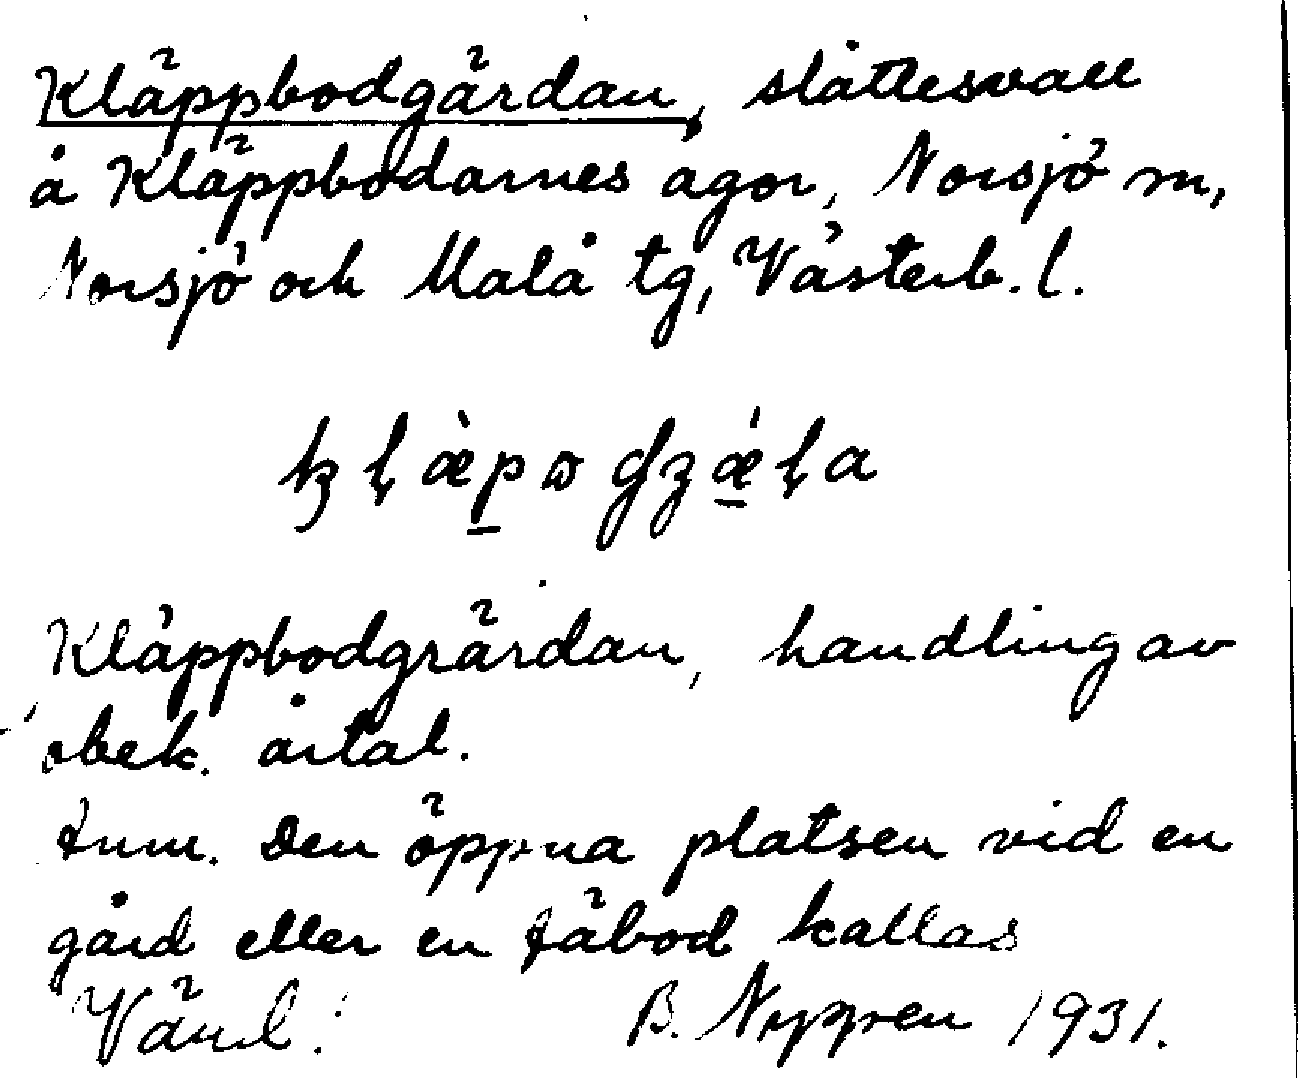 Kläppbodgärdan, slåttesvall
å Kläppbodarnes ägor, Norsjö sn,
Norsjö och Malå tg, Västerb. l.
Kläppbodgrärdan, handling av
obek. årtal.
Anm. Den öppna platsen vid en
gård eller en fäbod kallas
Vänd. B. Nygren 1931.